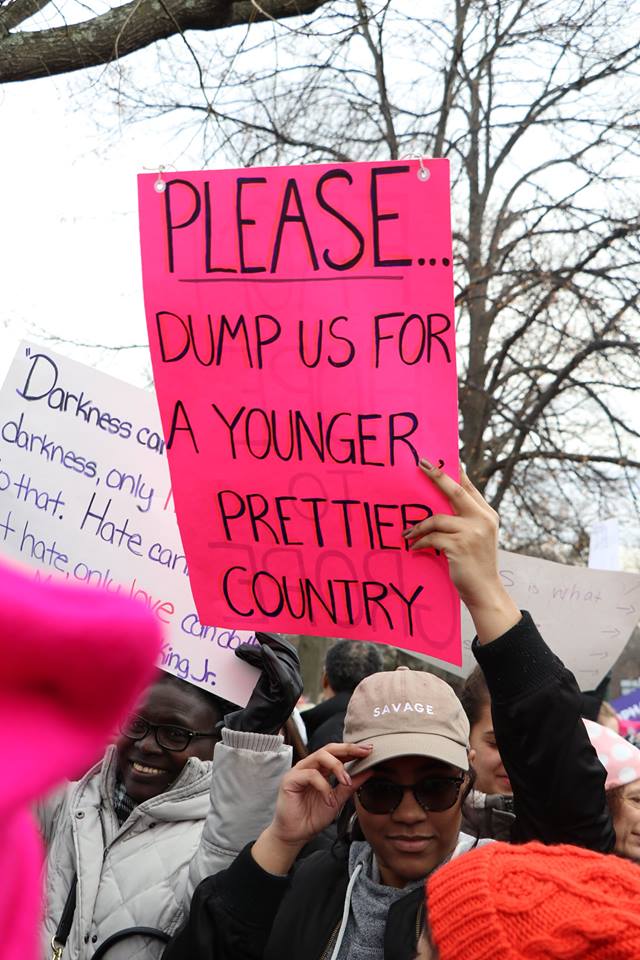 PLEASE...
DUMP US FOR
A YOUNGER,
PRETTIER
COUNTRY
"Darkness
darkness, only
that. Hate
hate, only love can do
King Jr.
SAVAGE
is what